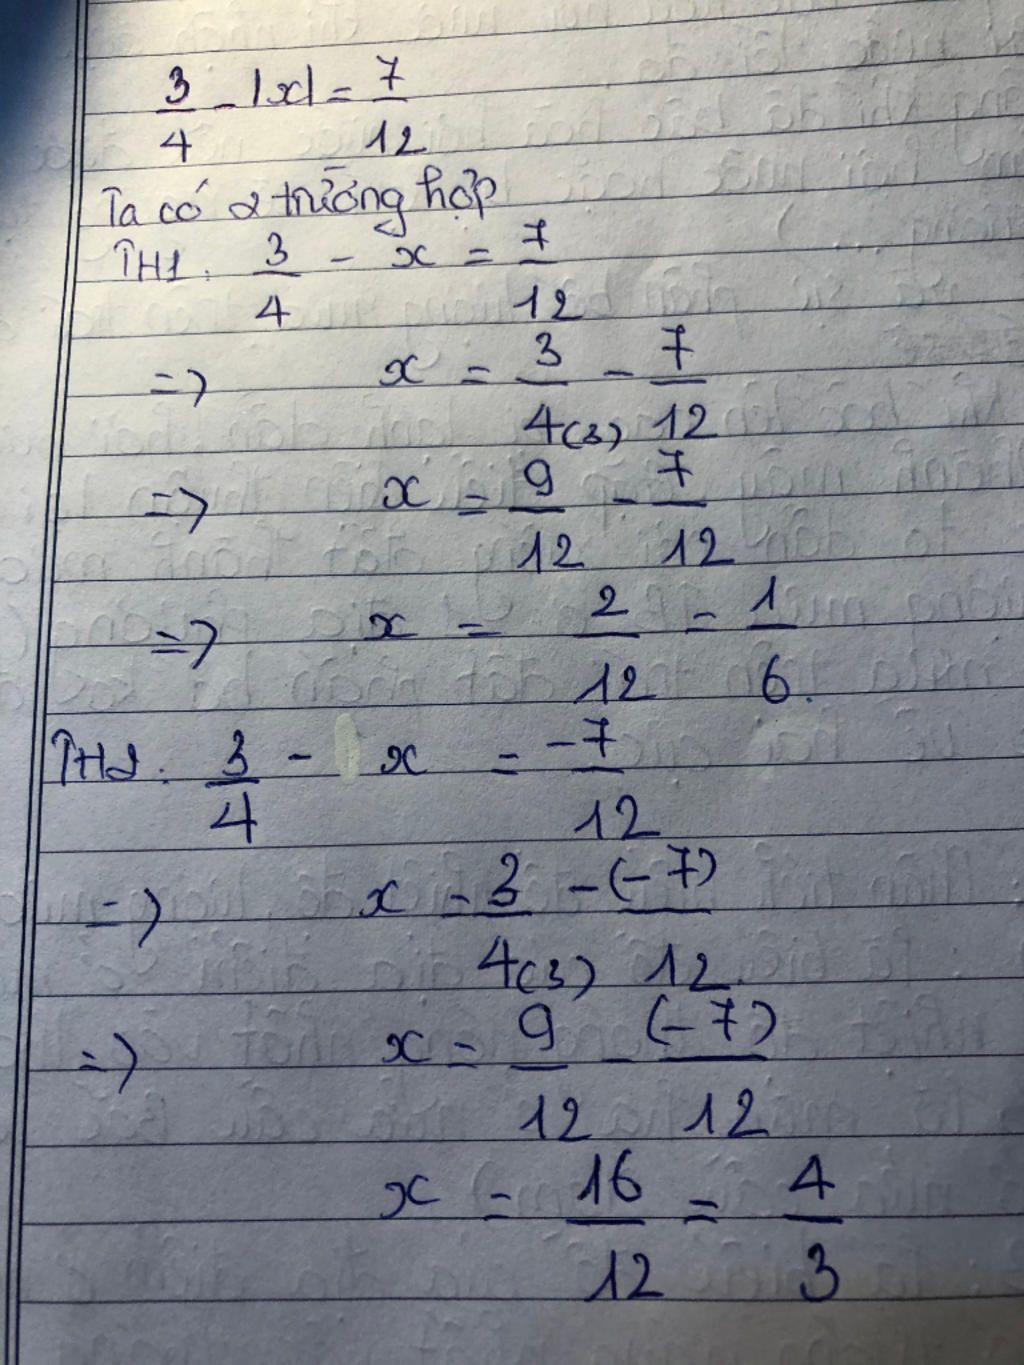 3/4 - |x| = 7/12
Ta có 2 trường hợp
TH1: 3/4 - x = 7/12
=> x = 3/4(3) - 7/12
=> x = 9/12 - 7/12
=> x = 2/12 = 1/6.
TH2: 3/4 - x = -7/12
=> x = 3/4(3) - (-7)/12
=> x = 9/12 - (-7)/12
x = 16/12 = 4/3